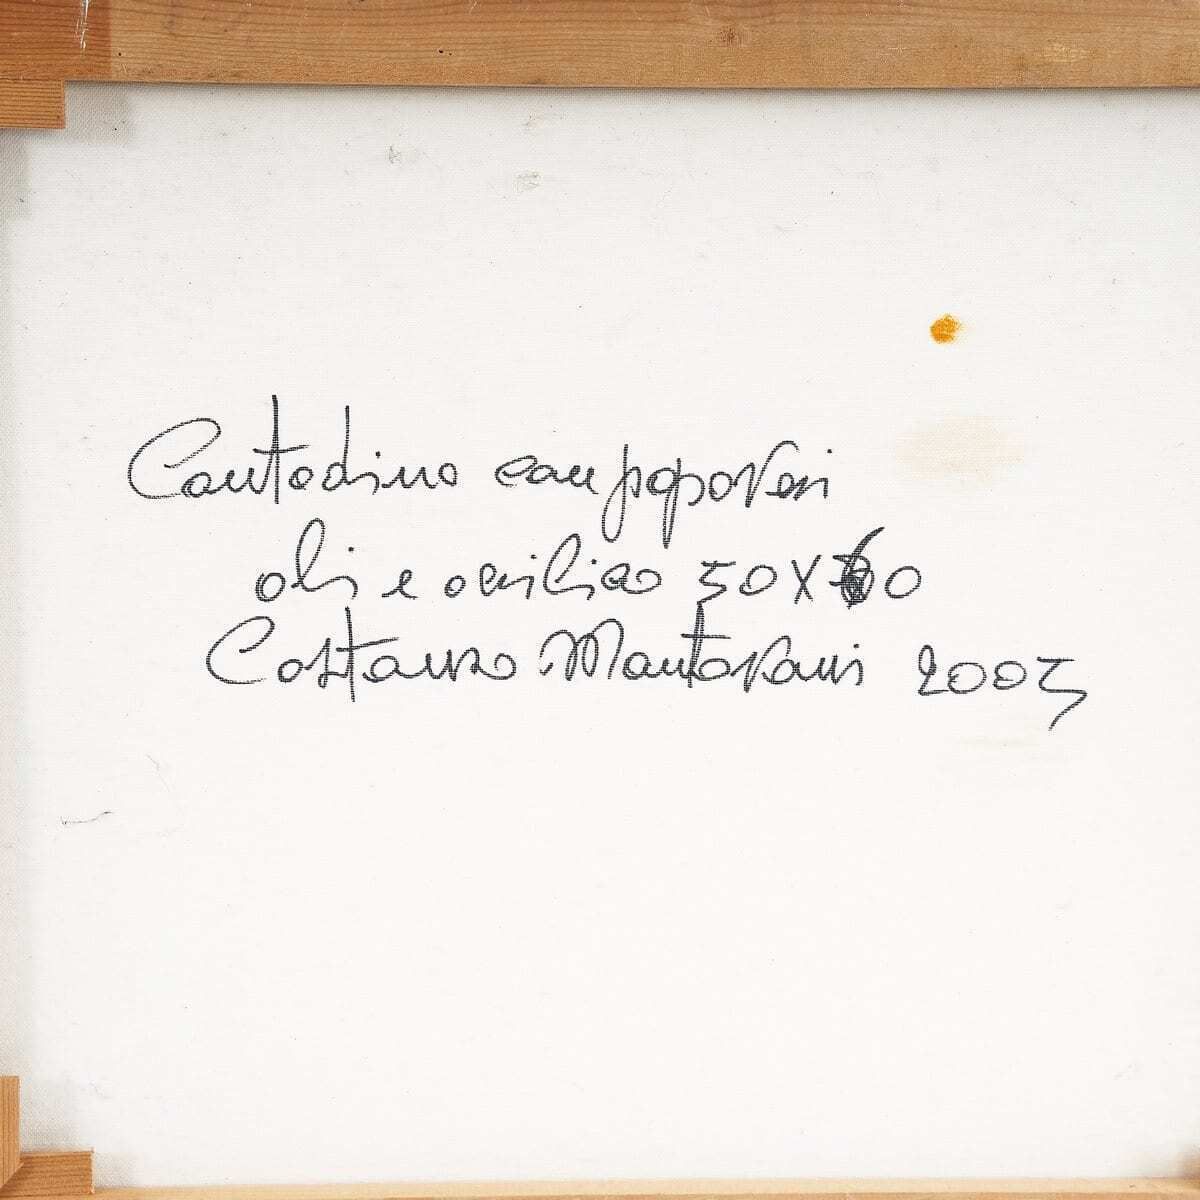 Contadino con papaveri
oli e acrilico 50 X 60
Costanzo Mantovani 2005